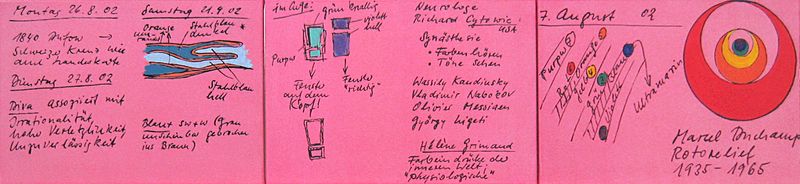 Montag 26.8.02
1890
Schweiz Kreuz
auf Landeskarte
Dienstag 27.8.02
Diva assoziert mit
Irrationalität,
hohe Verletzlichkeit,
Unzuverlässigkeit
Samstag 21.9.02
Orange
Stahlblau
dunkel
Stahlblau
hell
Blau + sw + w (grau
unscheinbar gebrochen
ins Braun)
im Auge:
grün knallig
violett
hell
Purpur
Fenster
auf dem
Kopf!
Fenster
"richtig"
Neurologe
Richard Cytowic:
USA
Synästhesie
• Farbenhören
• Töne sehen
Wassily Kandinsky
Vladimir Nabokov
Olivier Messiaen
György Ligeti
Hélène Grimaud
Farbeindrücke der
inneren Welt:
"physiologische"
7. August 02
Purpur
Rot
Orange
gelb
grün
Ultramarin
Marcel Duchamp
Rotorelief
1935-1965